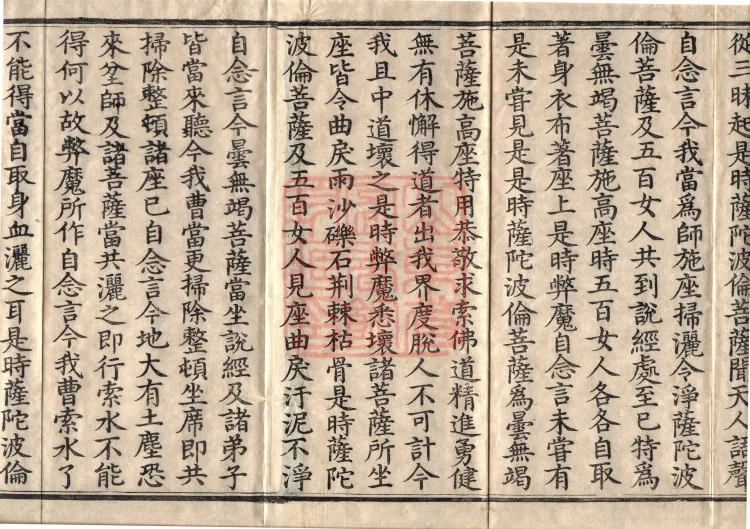 從三昧起是時薩陀波倫菩薩聞天人語聲
自念言今我當爲師施座掃灑令淨薩陀波
倫菩薩及五百女人共到說經處至已特爲
曇無竭菩薩施高座時五百女人各各自取
著身衣布著座上是時弊魔自念言未嘗有
是未嘗見是是時薩陀波倫菩薩爲曇無竭
菩薩施高座特用恭敬求索佛道精進勇健
無有休懈得道者出我界度脫人不可計今
我且中道壞之是時弊魔悉壞諸菩薩所坐
座皆令曲戾雨沙礫石荆棘枯骨是時薩陀
波倫菩薩及五百女人見座曲戾汙泥不淨
自念言今曇無竭菩薩當坐說經及諸弟子
皆當來聽今我曹當更掃除整頓坐席即共
掃除整頓諸座已自念言今地大有土塵恐
來坌師及諸菩薩當共灑之即行索水不能
得何以故弊魔所作自念言今我曹索水了
不能得當自取身血灑之耳是時薩陀波倫